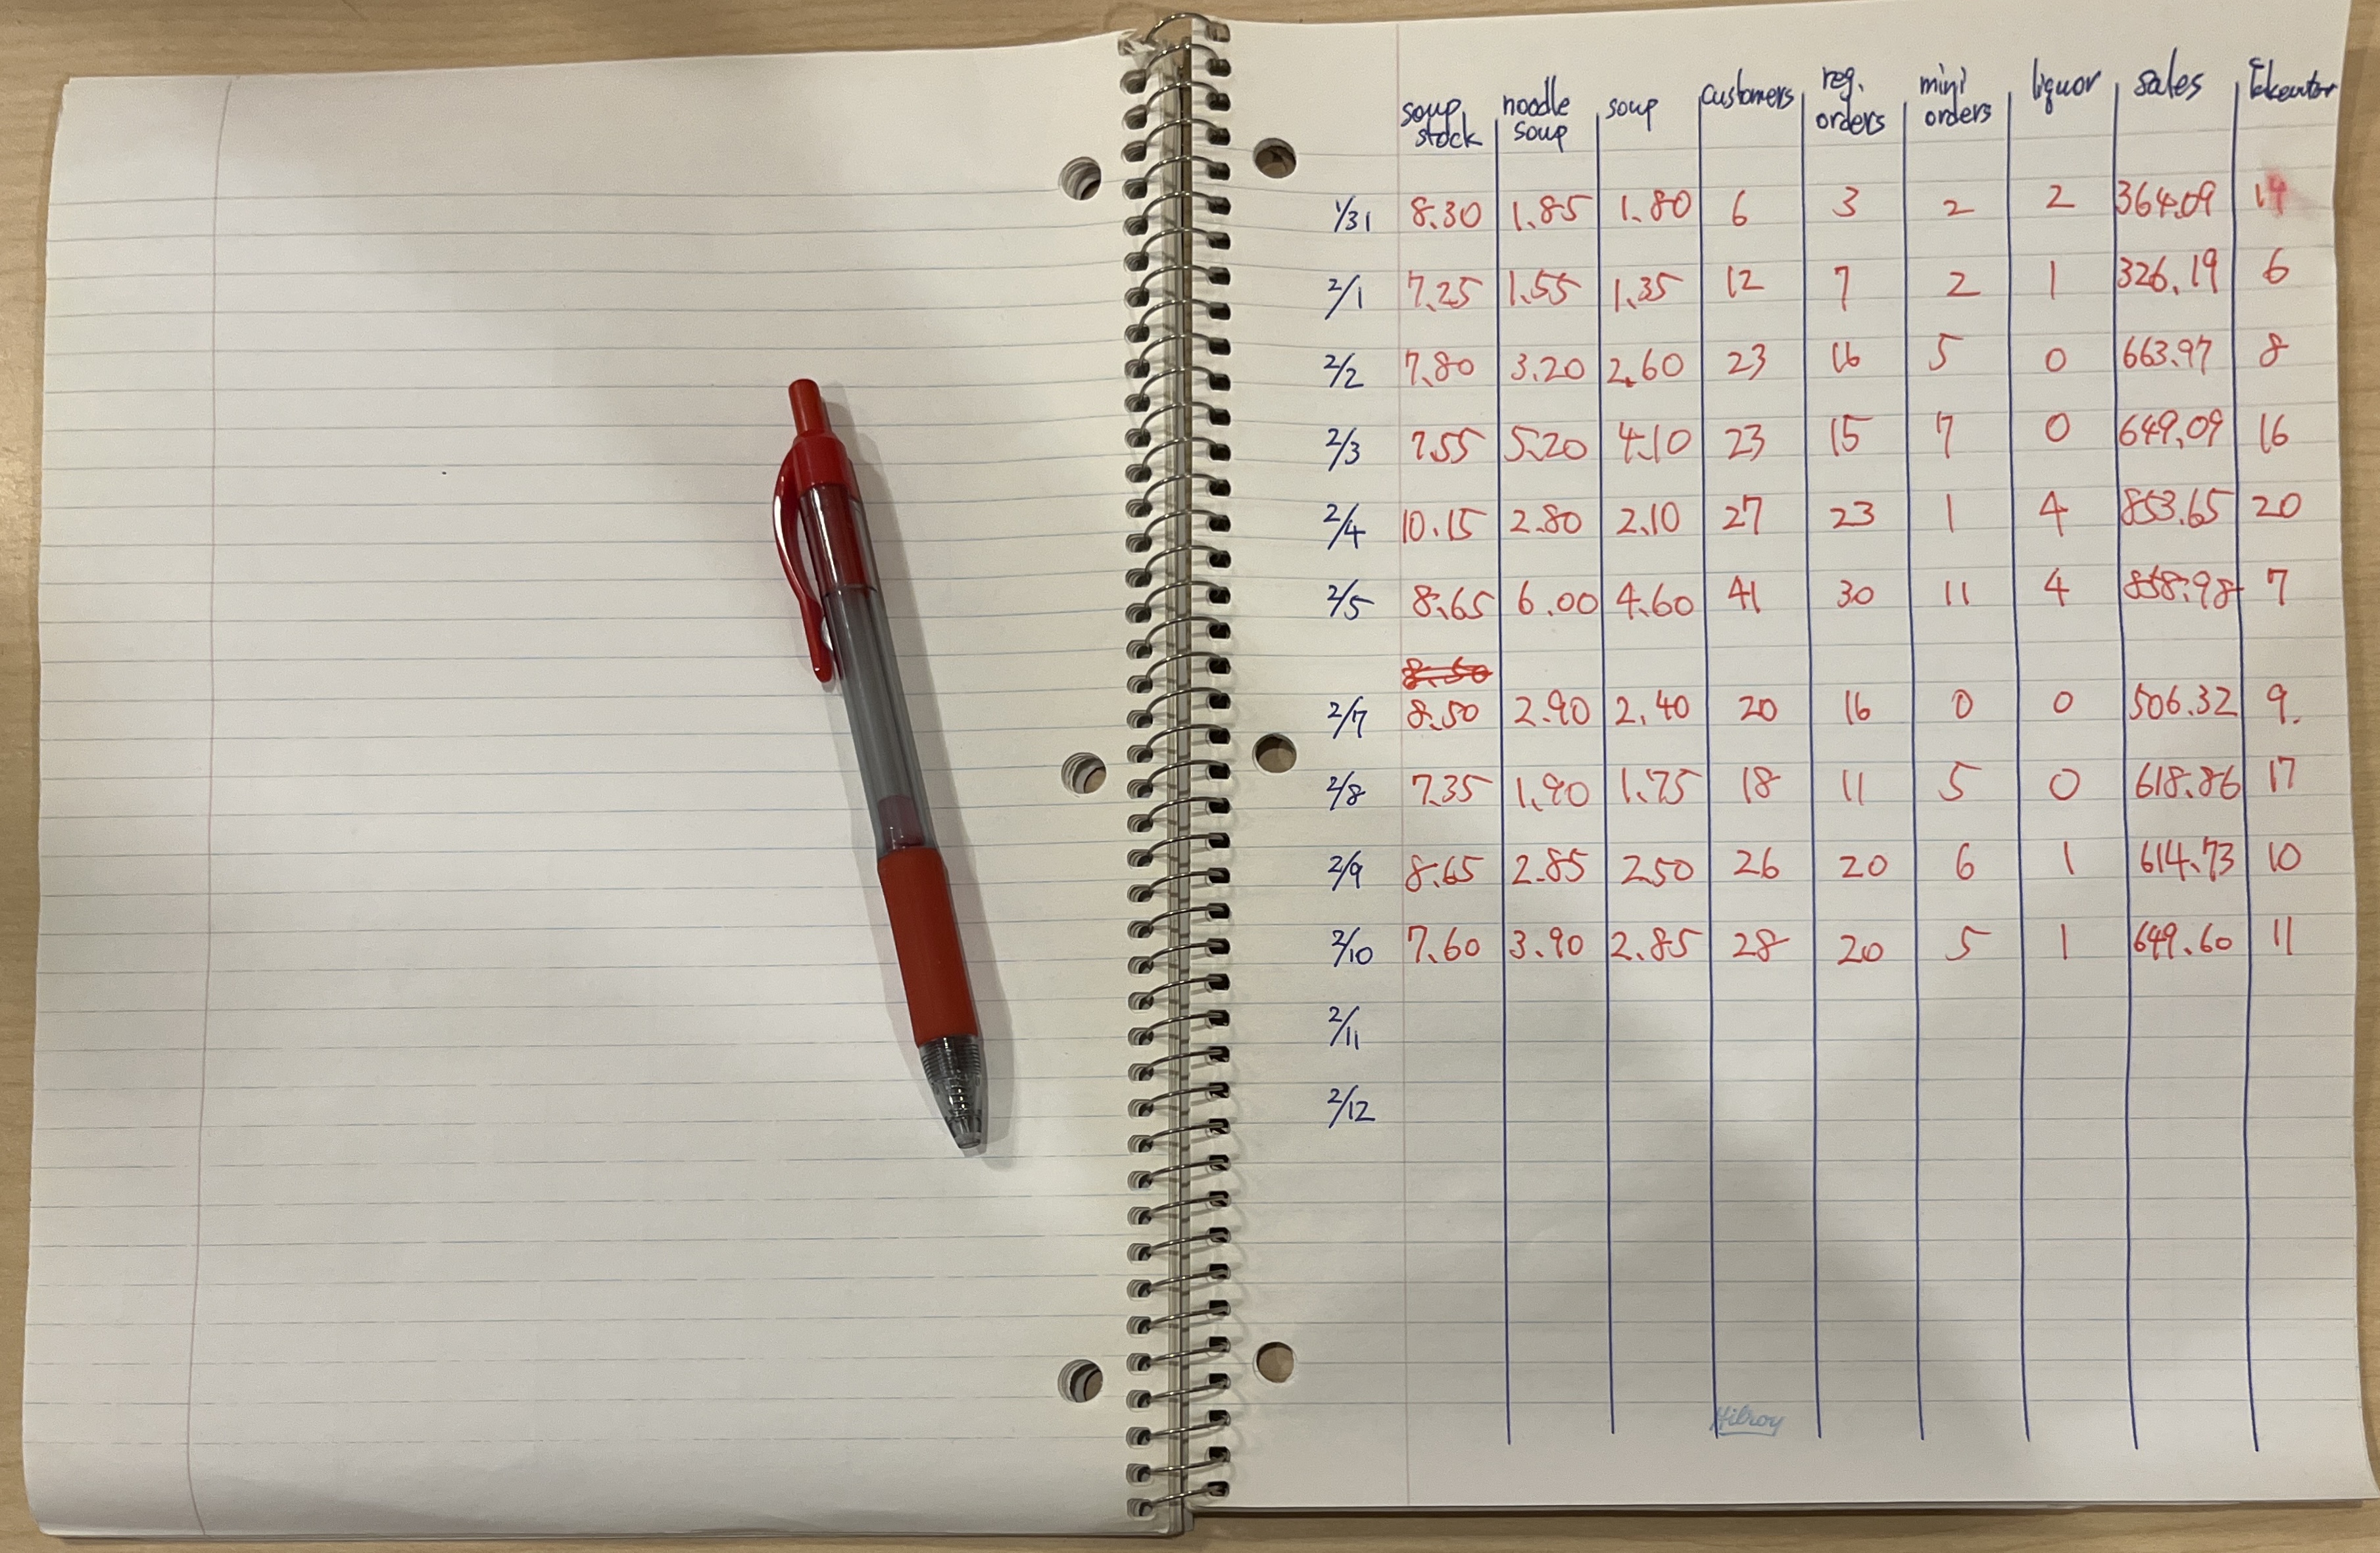 soup stock noodle soup soup customers reg. orders mini orders liquor sales takeouter
1/31 8.30 1.85 1.80 6 3 2 2 364.09 14
2/1 7.25 1.55 1.35 12 7 2 1 326.19 6
2/2 7.80 3.20 2.60 23 16 5 0 663.97 8
2/3 7.55 5.20 4.10 23 15 7 0 649.09 16
2/4 10.15 2.80 2.10 27 23 1 4 853.65 20
2/5 8.65 6.00 4.60 41 30 11 4 858.98 7
8.50
2/7 8.50 2.90 2.40 20 16 0 0 506.32 9.
2/8 7.35 1.90 1.75 18 11 5 0 618.86 17
2/9 8.65 2.85 2.50 26 20 6 1 614.73 10
2/10 7.60 3.90 2.85 28 20 5 1 649.60 11
2/11
2/12
Hilroy